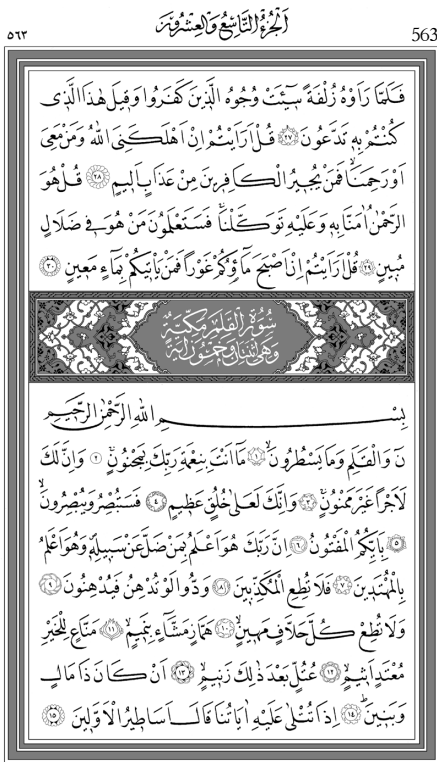 ٥٦٣ اَلْجُزْءُ التَّاسِعُ وَالْعِشْرُونَ 563
فَلَمَّا رَاَوْهُ زُلْفَةً سٖٓيـَٔتْ وُجُوهُ الَّذٖينَ كَفَرُوا وَقٖيلَ هٰذَا الَّذٖى
كُنْتُمْ بِهٖ تَدَّعُونَ ﴿٢٧﴾ قُلْ اَرَاَيْتُمْ اِنْ اَهْلَكَنِىَ اللّٰهُ وَمَنْ مَعِىَ
اَوْ رَحِمَنَاۙ فَمَنْ يُجٖيرُ الْكَافِرٖينَ مِنْ عَذَابٍ اَلٖيمٍ ﴿٢٨﴾ قُلْ هُوَ
الرَّحْمٰنُ اٰمَنَّا بِهٖ وَعَلَيْهِ تَوَكَّلْنَاۚ فَسَتَعْلَمُونَ مَنْ هُوَ فٖى ضَلَالٍ
مُبٖينٍ ﴿٢٩﴾ قُلْ اَرَاَيْتُمْ اِنْ اَصْبَحَ مَٓاؤُ۬كُمْ غَوْرًا فَمَنْ يَاْتٖيكُمْ بِمَٓاءٍ مَعٖينٍ ﴿٣٠﴾
سُورَةُ الْقَلَمِ مَكِّيَّةٌ
وَهِىَ اثْنَتَانِ وَخَمْسُونَ اٰيَةً
بِسْمِ اللّٰهِ الرَّحْمٰنِ الرَّحٖيمِ
نٓ وَالْقَلَمِ وَمَا يَسْطُرُونَۙ ﴿١﴾ مَٓا اَنْتَ بِنِعْمَةِ رَبِّكَ بِمَجْنُونٍۚ ﴿٢﴾ وَاِنَّ لَكَ
لَاَجْرًا غَيْرَ مَمْنُونٍۚ ﴿٣﴾ وَاِنَّكَ لَعَلٰى خُلُقٍ عَظٖيمٍ ﴿٤﴾ فَسَتُبْصِرُ وَيُبْصِرُونَۙ
﴿٥﴾ بِاَيِّكُمُ الْمَفْتُونُ ﴿٦﴾ اِنَّ رَبَّكَ هُوَ اَعْلَمُ بِمَنْ ضَلَّ عَنْ سَبٖيلِهٖ وَهُوَ اَعْلَمُ
بِالْمُهْتَدٖينَ ﴿٧﴾ فَلَا تُطِعِ الْمُكَذِّبٖينَ ﴿٨﴾ وَدُّوا لَوْ تُدْهِنُ فَيُدْهِنُونَ ﴿٩﴾
وَلَا تُطِعْ كُلَّ حَلَّافٍ مَهٖينٍۙ ﴿١٠﴾ هَمَّازٍ مَشَّٓاءٍ بِنَمٖيمٍۙ ﴿١١﴾ مَنَّاعٍ لِلْخَيْرِ
مُعْتَدٍ اَثٖيمٍۙ ﴿١٢﴾ عُتُلٍّ بَعْدَ ذٰلِكَ زَنٖيمٍۙ ﴿١٣﴾ اَنْ كَانَ ذَا مَالٍ
وَبَنٖينَۜ ﴿١٤﴾ اِذَا تُتْلٰى عَلَيْهِ اٰيَاتُنَا قَالَ اَسَاطٖيرُ الْاَوَّلٖينَ ﴿١٥﴾